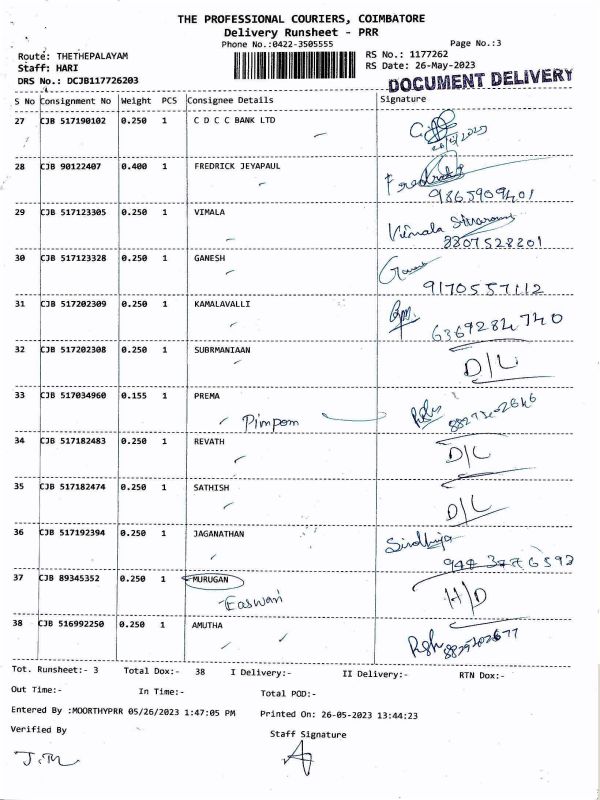 THE PROFESSIONAL COURIERS, COIMBATORE
Delivery Runsheet - PRR
Phone No.:0422-3505555 Page No.:3
Route: THETHEPALAYAM RS No.: 1177262
Staff: HARI RS Date: 26-May-2023
DRS No.: DCJB117726203 DOCUMENT DELIVERY
S No Consignment No Weight PCS Consignee Details Signature
27 CJB 517190102 0.250 1 C D C C BANK LTD
28 CJB 90122407 0.400 1 FREDRICK JEYAPAUL Fredrick
9865909401
29 CJB 517123305 0.250 1 VIMALA Vimala
8807528201
30 CJB 517123328 0.250 1 GANESH
9170557112
31 CJB 517202309 0.250 1 KAMALAVALLI
6369284740
32 CJB 517202308 0.250 1 SUBRMANIAAN D/L
33 CJB 517034960 0.155 1 PREMA
Pimpom
34 CJB 517182483 0.250 1 REVATH D/L
35 CJB 517182474 0.250 1 SATHISH D/L
36 CJB 517192394 0.250 1 JAGANATHAN Sindhuja
37 CJB 89345352 0.250 1 MURUGAN H/D
Easwari
38 CJB 516992250 0.250 1 AMUTHA
Tot. Runsheet:- 3 Total Dox:- 38 I Delivery:- II Delivery:- RTN Dox:-
Out Time:- In Time:- Total POD:-
Entered By :MOORTHYPRR 05/26/2023 1:47:05 PM Printed On: 26-05-2023 13:44:23
Verified By Staff Signature